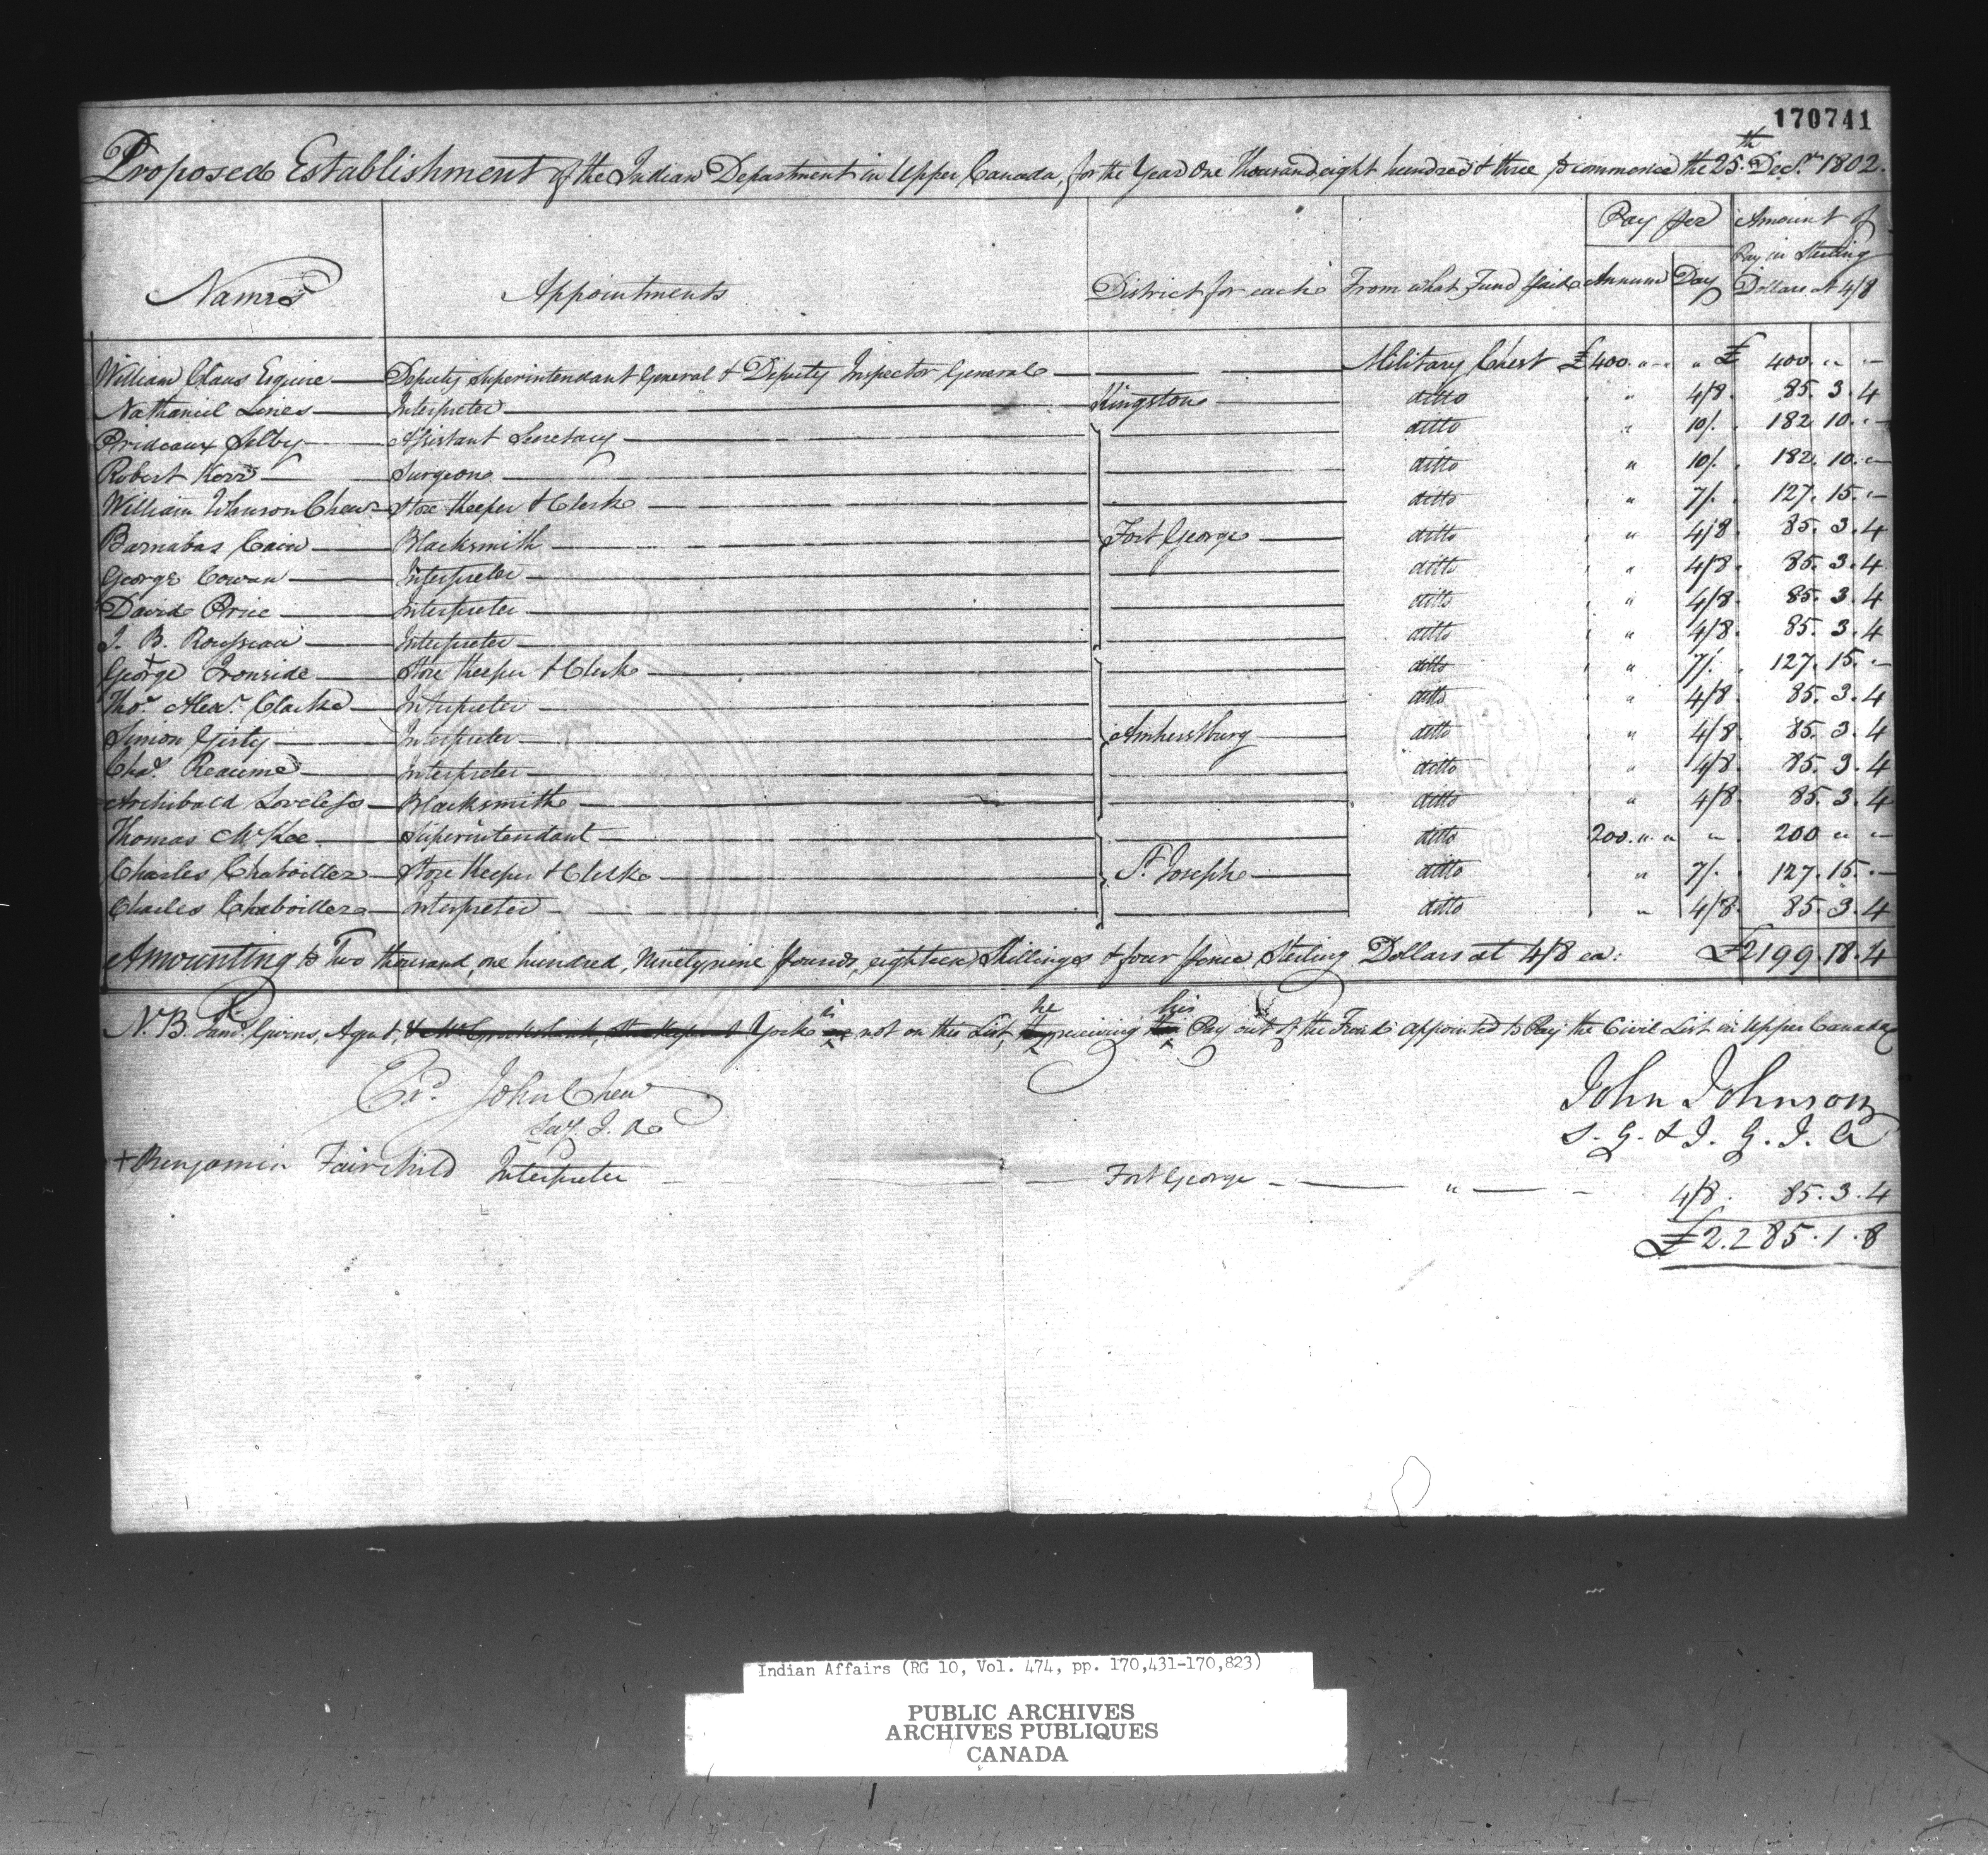 170741
Proposed Establishment of the Indian Department in Upper Canada, for the Year One thousand eight hundred & three, to commence the 25th Decr. 1802.
Names Appointments District for each From what Fund paid Pay per Annum Day Amount of Pay in Sterling Dollars at 4/8
William Claus Esquire Deputy Superintendant General & Deputy Inspector General Military Chest £400 " " " £ 400 " "
Nathaniel Lines Interpreter Kingston ditto " 4/8 85. 3. 4
Prideaux Selby Assistant Secretary ditto " 10/. 182. 10. "
Robert Kerr Surgeon ditto " 10/. 182. 10. "
William Johnson Chew Store Keeper & Clerk ditto " 7/. 127. 15. "
Barnabas Cain Blacksmith Fort George ditto " 4/8 85. 3. 4
George Cowan Interpreter ditto " 4/8 85. 3. 4
David Price Interpreter ditto " 4/8 85. 3. 4
J. B. Rousseau Interpreter ditto " 4/8 85. 3. 4
George Ironside Store Keeper & Clerk ditto " 7/. 127. 15. "
Thos. Alexr. Clarke Interpreter ditto " 4/8 85. 3. 4
Simon Girty Interpreter Amherstburg ditto " 4/8 85. 3. 4
Chas. Reaume Interpreter ditto " 4/8 85. 3. 4
Archibald Loveless Blacksmith ditto " 4/8 85. 3. 4
Thomas McKee Superintendant ditto 200 " " " 200 " "
Charles Chaboillez Store Keeper & Clerk St. Joseph ditto " 7/. 127. 15. "
Charles Chaboillez Interpreter ditto " 4/8 85. 3. 4
Amounting to Two thousand, one hundred, Ninety nine pounds, eighteen Shillings & four pence Sterling Dollars at 4/8 ea: £2199. 18. 4
N.B. Givins, Agent, York is not on this List, he receiving his Pay out of the Funds appointed to Pay the Civil List in Upper Canada
Exd. John Chew
Secy. I. D.
John Johnson
S. G. & I. G. I. A
+ Benjamin Fairchild Interpreter Fort George " 4/8. 85. 3. 4
£2.285. 1. 8
Indian Affairs (RG 10, Vol. 474, pp. 170,431-170,823)
PUBLIC ARCHIVES
ARCHIVES PUBLIQUES
CANADA